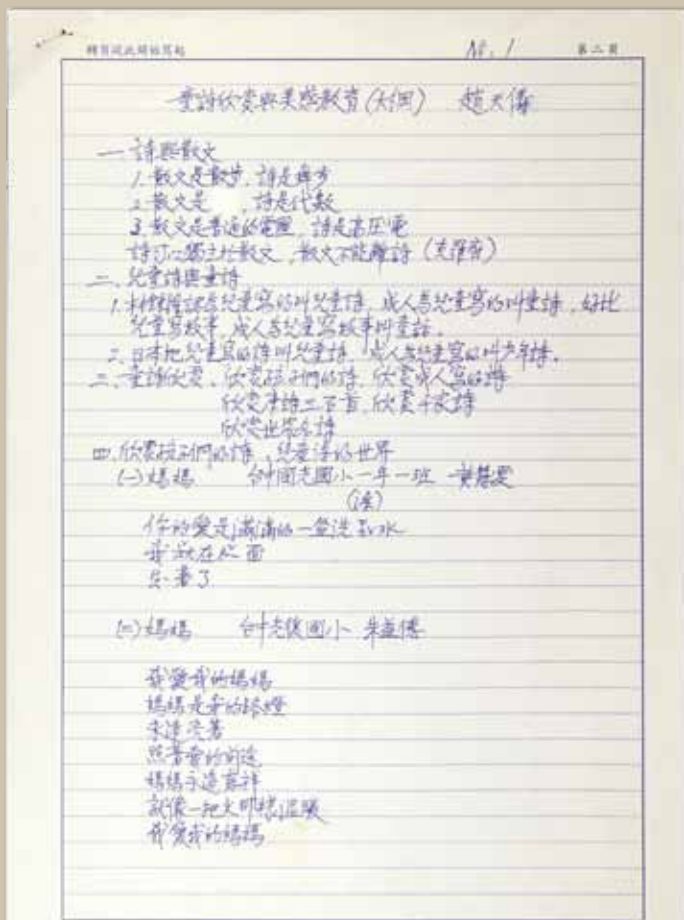 轉頁從此開始寫起 No. 1 第二頁
童詩欣賞與美感教育(大綱) 趙天儀
一、詩與散文
1. 散文是散步，詩是舞步
2. 散文是 ，詩是代數
3. 散文是普通的電壓，詩是高壓電
詩可以獨立於散文，散文不能離詩
二、兒童詩與童詩
1. 林鍾隆認為兒童寫的叫兒童詩，成人為兒童寫的叫童詩，好比
兒童寫故事，成人為兒童寫故事叫童話。
2. 日本把兒童寫的詩叫兒童詩，成人為兒童寫的叫少年詩。
三、童詩欣賞、欣賞孩子們的詩，欣賞成人寫的詩
欣賞唐詩三百首，欣賞千家詩
欣賞世界名詩
四、欣賞孩子們的詩，兒童詩的世界
(一)媽媽 國小一年一班 黃慧雯
你的愛是滿滿的一盆洗澡水
我就在裡面
(二)媽媽 國小
我愛我的媽媽
媽媽是我的路燈
永遠亮著
照著我的前途
媽媽永遠慈祥
就像一把火那樣溫暖
我愛我的媽媽